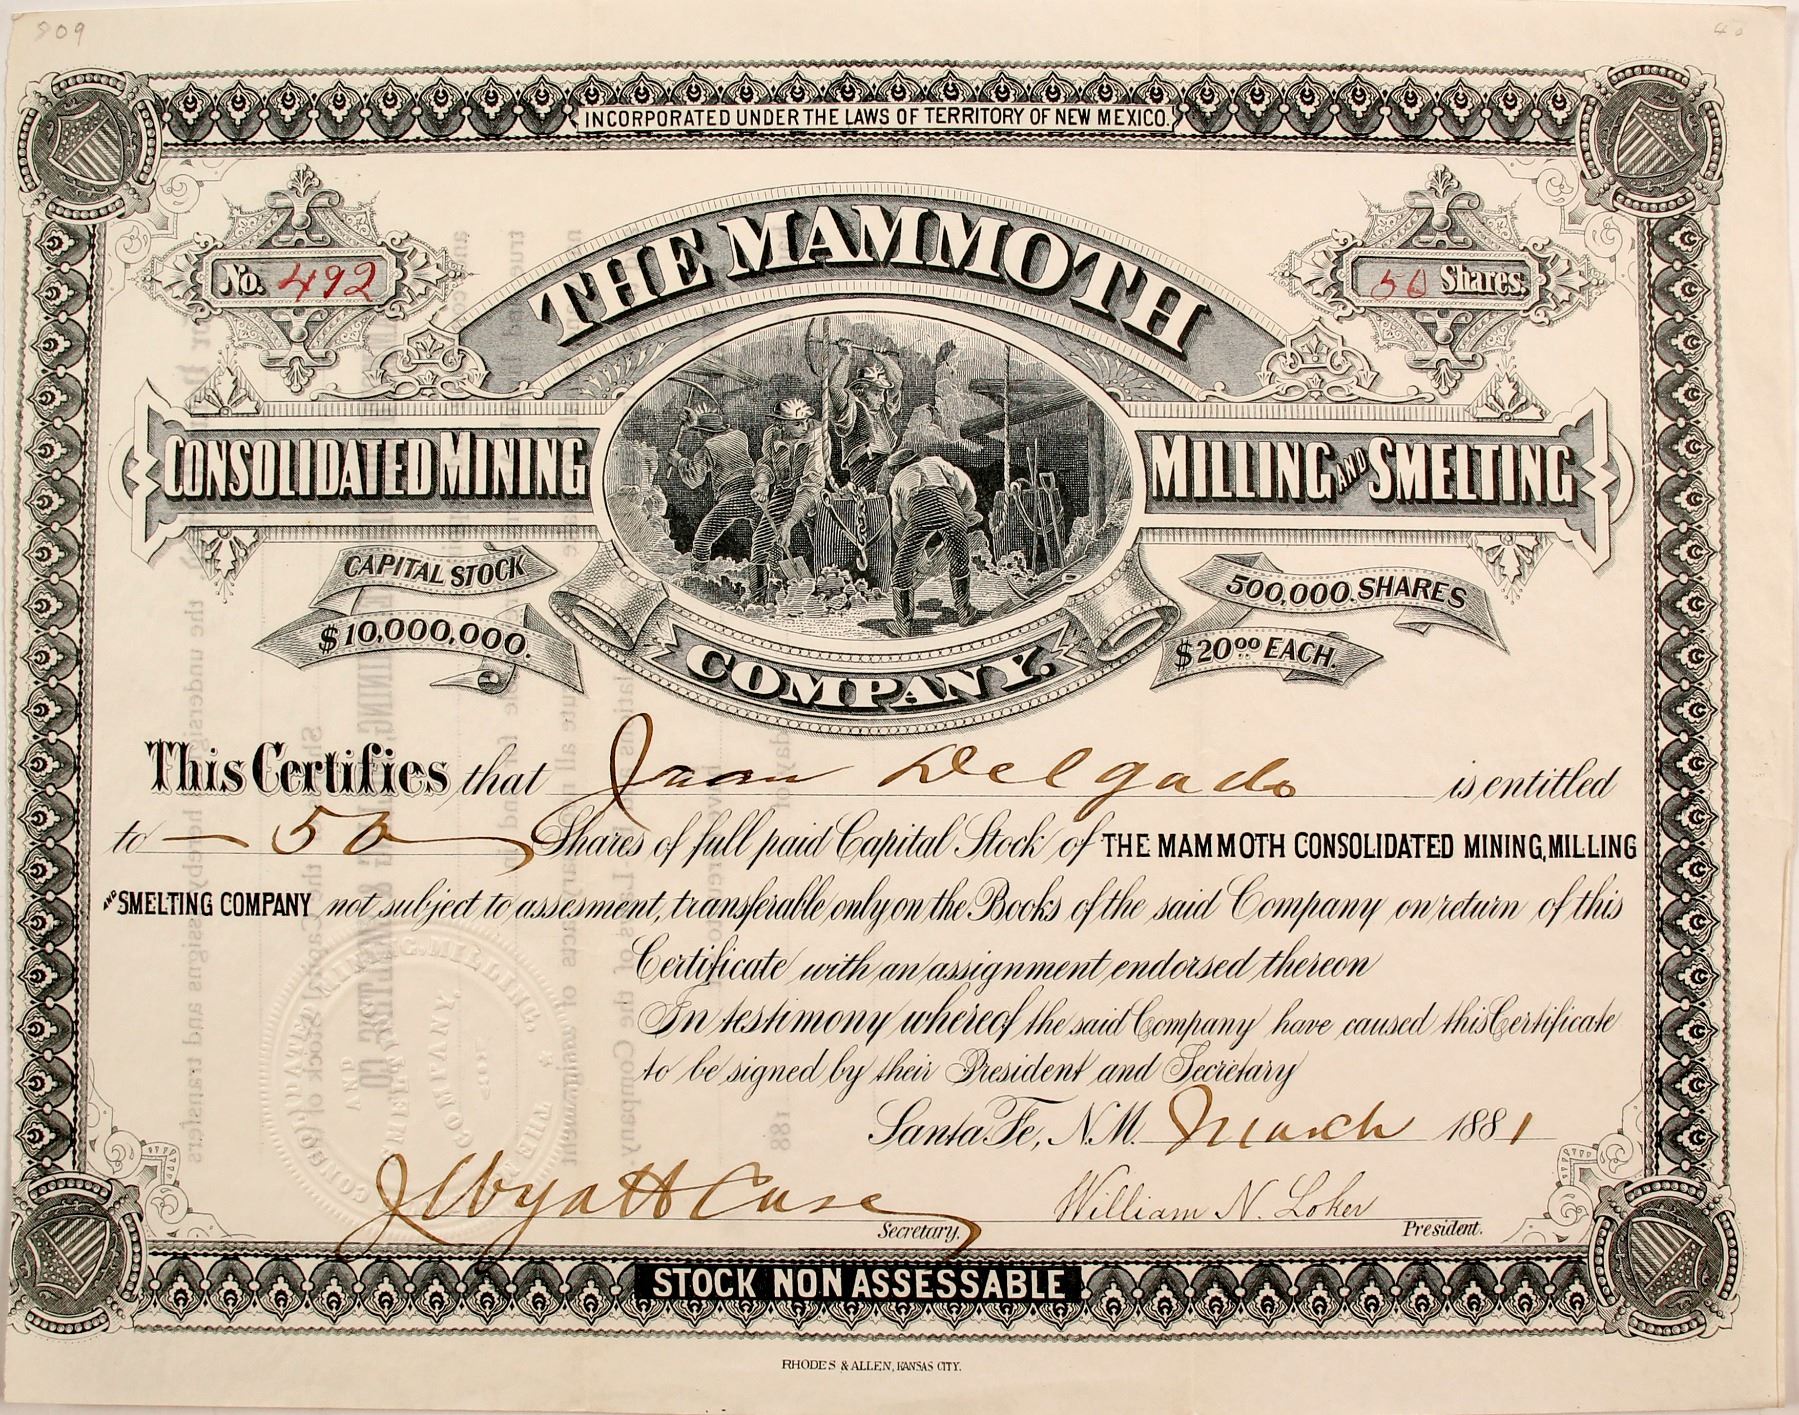 809
INCORPORATED UNDER THE LAWS OF TERRITORY OF NEW MEXICO.
No. 492
50 Shares.
THE MAMMOTH
CONSOLIDATED MINING MILLING AND SMELTING
COMPANY.
CAPITAL STOCK
$10,000,000.
500,000. SHARES
$20.00 EACH.
This Certifies that Juan Delgado is entitled
to 50 Shares of full paid Capital Stock of THE MAMMOTH CONSOLIDATED MINING, MILLING
AND SMELTING COMPANY not subject to assesment, transferable only on the Books of the said Company on return of this
Certificate with an assignment endorsed thereon
In testimony whereof the said Company have caused this Certificate
to be signed by their President and Secretary
Santa Fe, N.M. March 1881
Secretary.
William N. Loker
President.
STOCK NON ASSESSABLE
RHODES & ALLEN, KANSAS CITY.